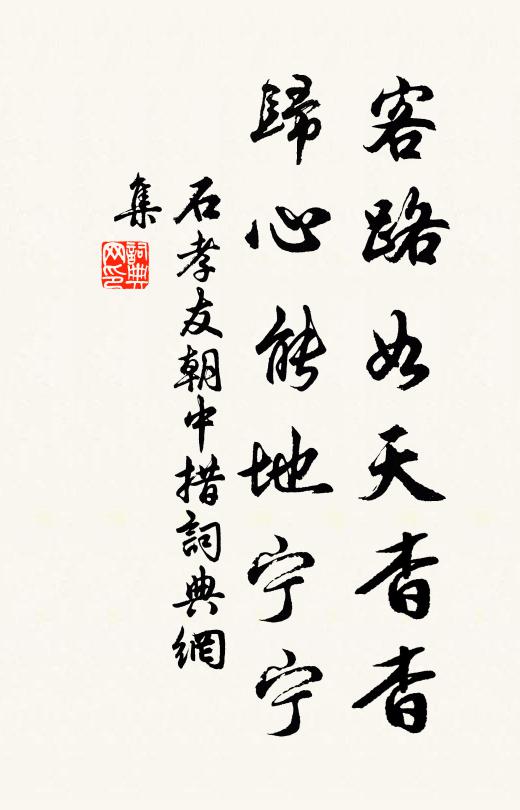 客路如天杳杳
歸心能地宁宁
石孝友朝中措詞典網
集
詞典
网印